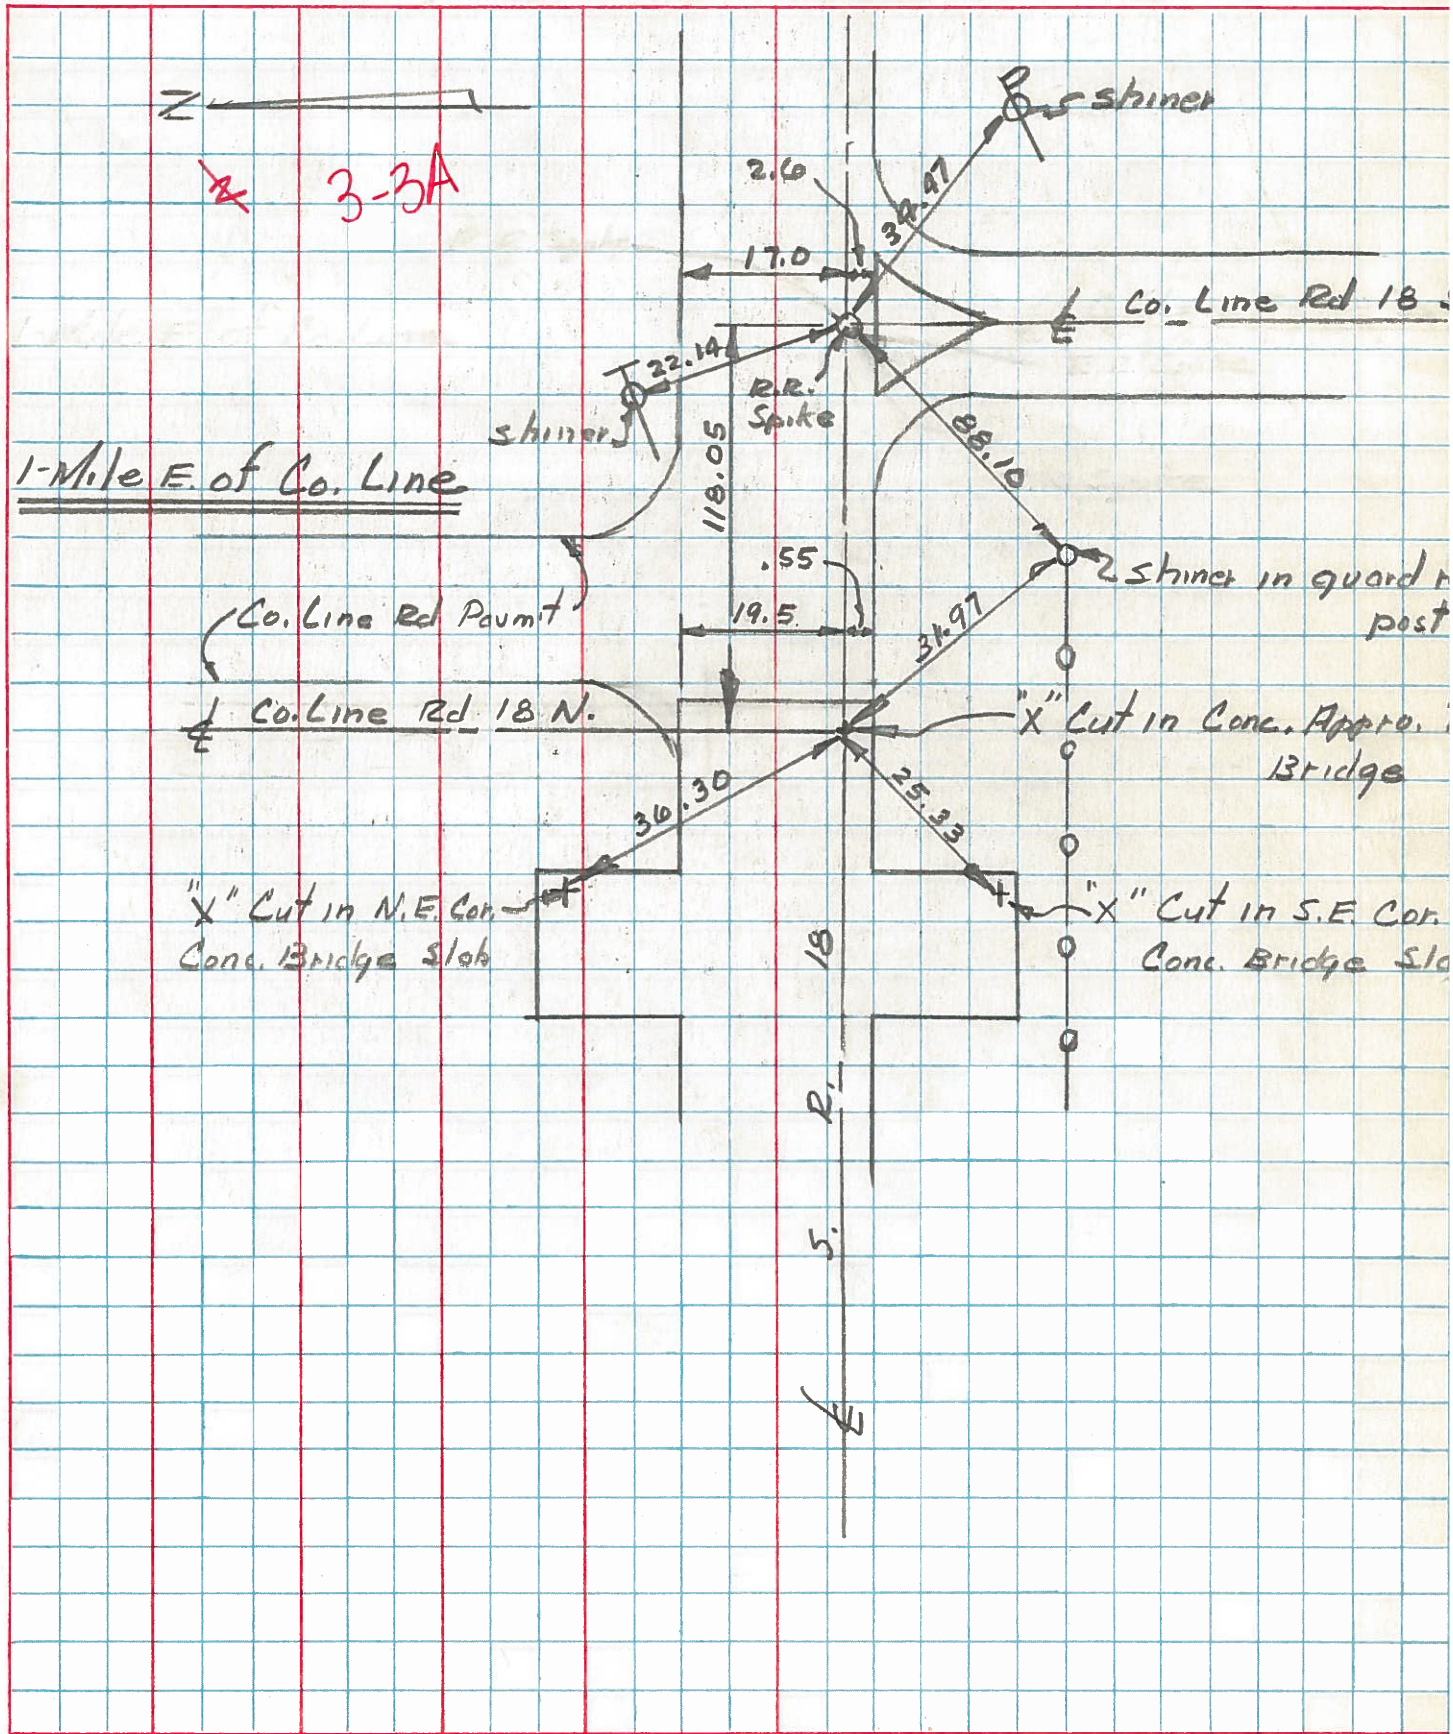 Z
3-3A
shiner
2.6
17.0
℄ Co. Line Rd 18
22.14
R.R.
Spike
shiner
88.10
118.05
1-Mile E. of Co. Line
.55
shiner in guard
post
Co. Line Rd Pavmt
19.5
31.97
℄ Co. Line Rd 18 N.
"X" Cut in Conc. Appro.
Bridge
36.30
25.33
"X" Cut in N.E. Cor.
Conc. Bridge Slab
"X" Cut in S.E. Cor.
Conc. Bridge
℄ S. R. 18